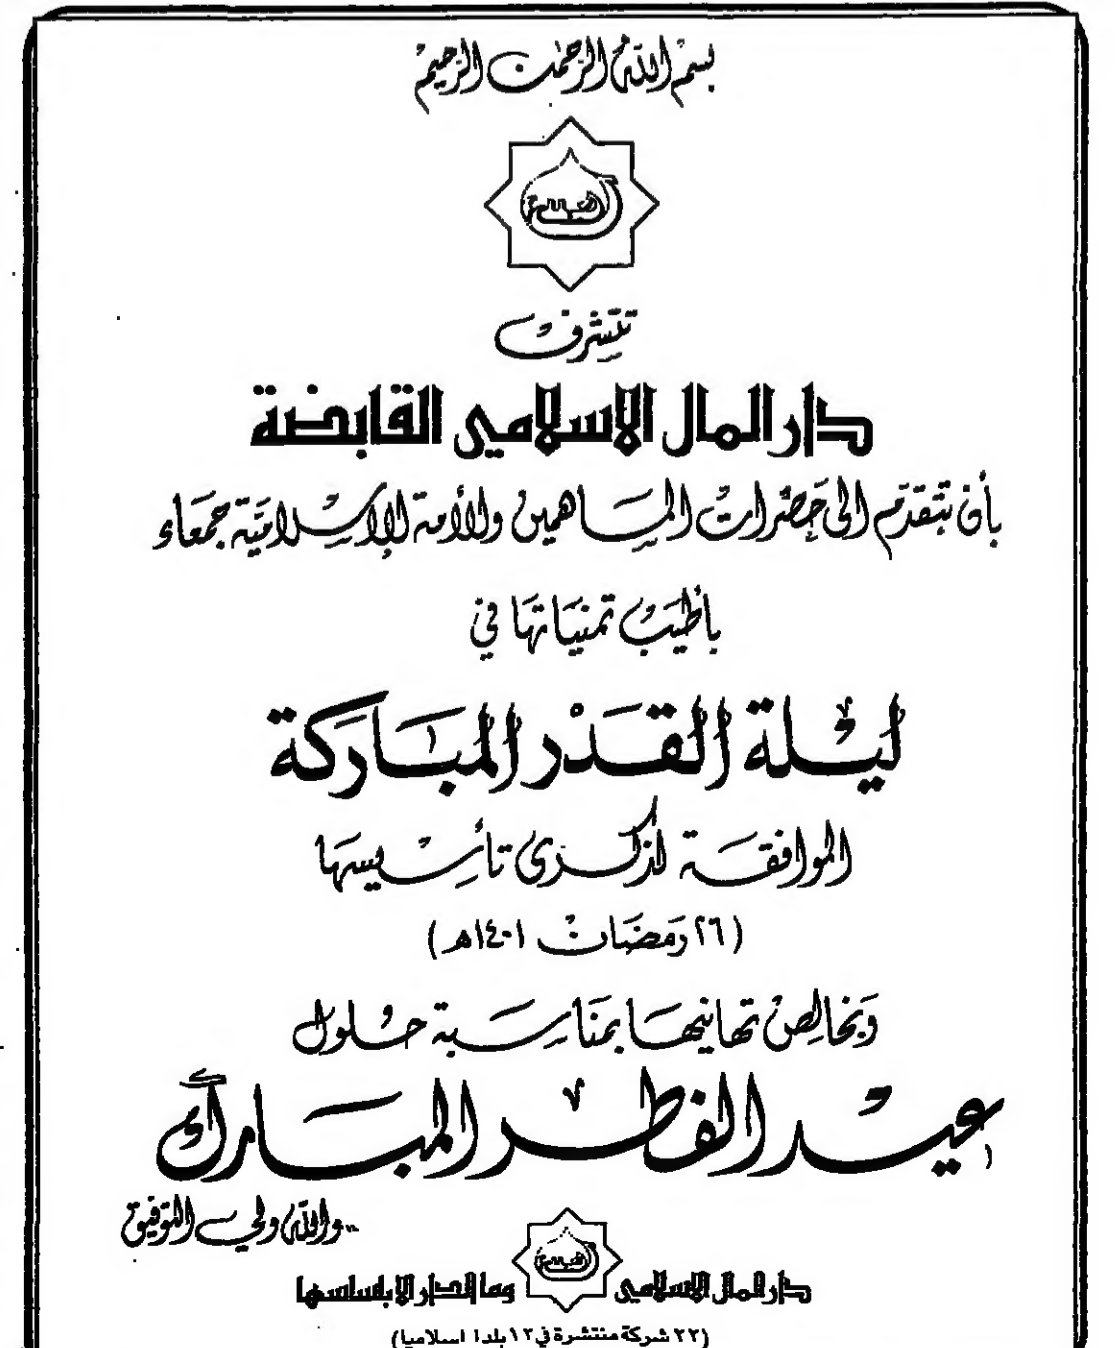 بسم الله الرحمن الرحيم
تتشرف
دار المال الاسلامي القابضة
بأن تتقدم الى حضرات المساهمين والأمة الإسلامية جمعاء
بأطيب تمنياتها في
ليلة القدر المباركة
الموافقة لذكرى تأسيسها
(٢٦ رمضان ١٤٠١هـ)
وبخالص تهانيها بمناسبة حلول
عيد الفطر المبارك
..والله ولي التوفيق
دار المال الاسلامي وما الدار الا باساسها
(٢٢ شركة منتشرة في ١٢ بلدا اسلاميا)